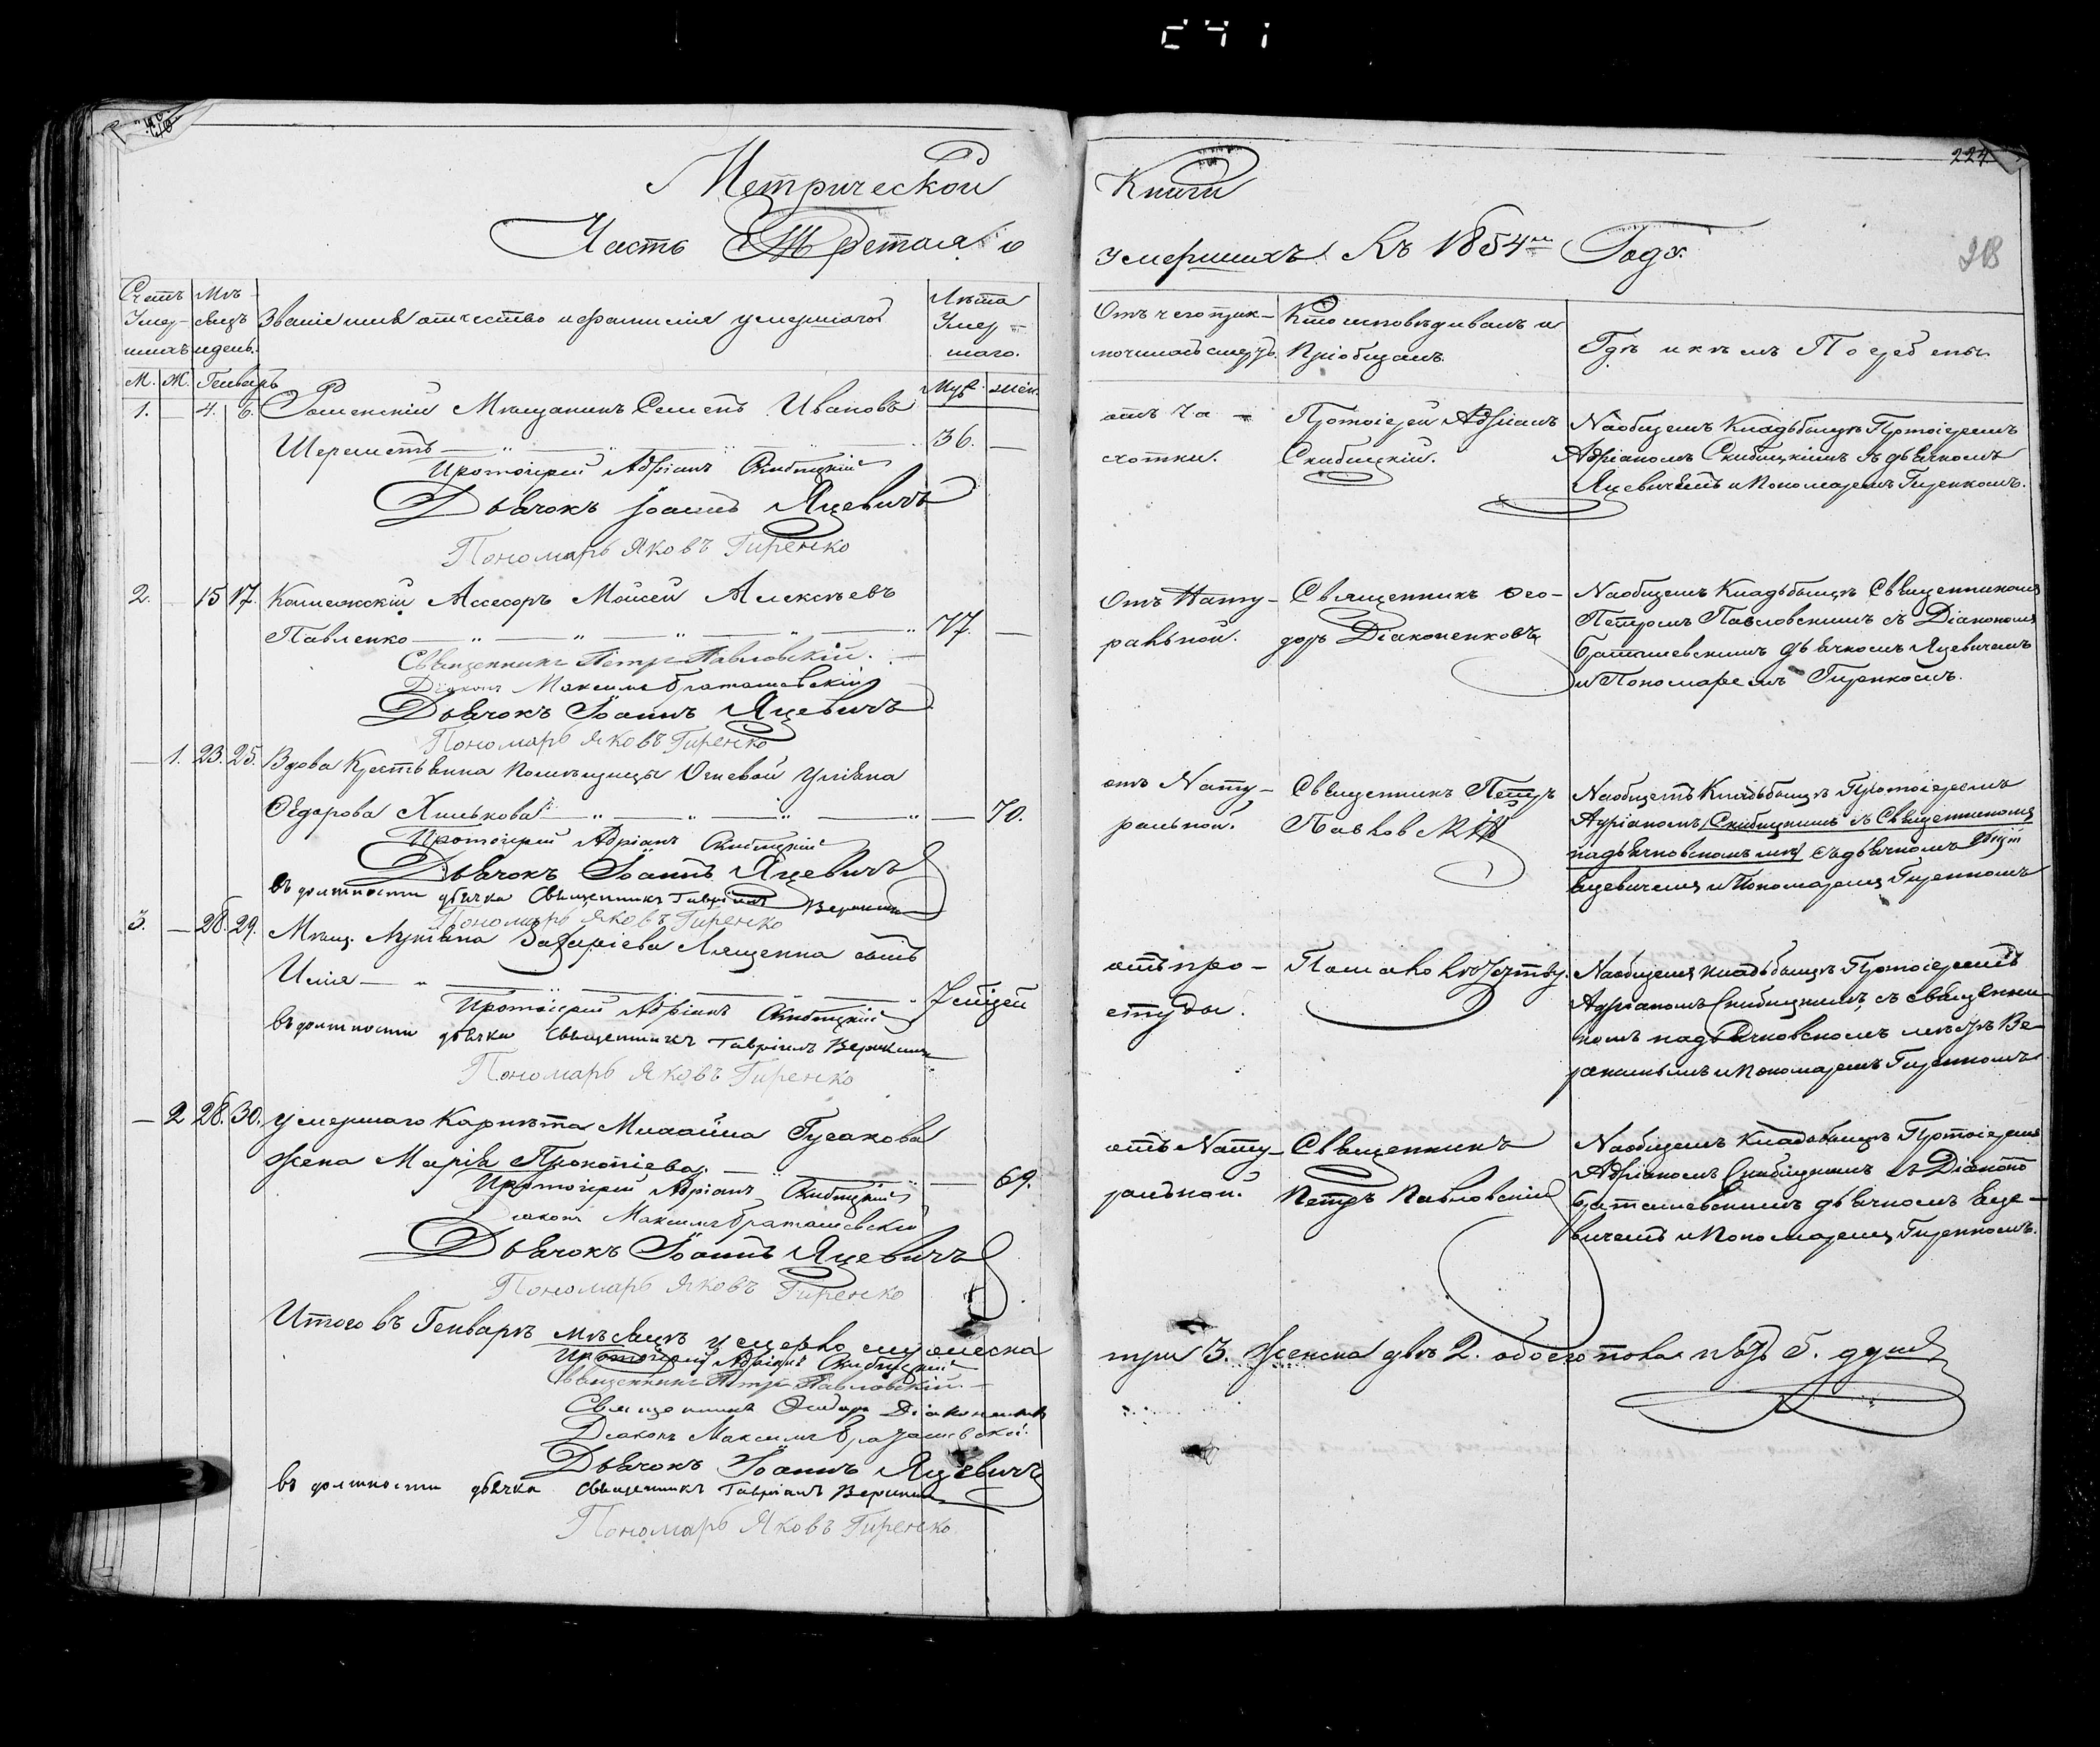 Метрической
Часть Третая о
Счетъ
Умер-
шихъ
Мѣ-
сяцъ
и день.
Званіе имя отчество и фамилія умершаго
Лѣта
Умер-
шаго.
М. Ж. Генварь
Муж. жен.
1. — 4. 6. Роменскій Мѣщанинъ Семенъ Ивановъ
Шереметъ 36. —
Протоіерей Адріанъ Скибицкій
Дьячокъ Іоаннъ Яцевичъ
Пономарь Яковъ Гиренко
2. — 15 17. Колежскій Ассесоръ Моисей Алексѣевъ
Павленко 77. —
Священникъ Петръ Павловскій.
Діаконъ Максимъ Браташевскій
Дьячокъ Іоаннъ Яцевичъ
Пономарь Яковъ Гиренко
— 1. 23. 25. Вдова Крестьянка помѣщицы Огневой Уліяна
Ѳедорова Хилькова — 70.
Протоіерей Адріанъ Скибицкій
Дьячокъ Іоаннъ Яцевичъ
въ должности дьячка Священникъ Гавріилъ
Пономарь Яковъ Гиренко
3. — 28. 29. Мѣщ. Лукіяна Захаріева Лященка сынъ
Илія 7 мѣсец
Протоіерей Адріанъ Скибицкій
въ должности дьячка Священникъ Гавріилъ
Пономарь Яковъ Гиренко
— 2 28. 30. умершаго Карнѣта Михайла Гусакова
Жена Марія Прокопіева. — 69.
Протоіерей Адріанъ Скибицкій
Діаконъ Максимъ Браташевскій
Дьячокъ Іоаннъ Яцевичъ
Пономарь Яковъ Гиренко
Итого въ Генварѣ мѣсяцѣ умерло мужеска
Протоіерей Адріанъ Скибицкій
Священникъ Петръ Павловскій
Священникъ Ѳеодоръ Діаконенковъ
Діаконъ Максимъ Браташевскій
Дьячокъ Іоаннъ Яцевичъ
въ должности дьячка Священникъ Гавріилъ
Пономарь Яковъ Гиренко
224
Книги
умершихъ. Въ 1854м Году.
218
Отъ чего прик-
лючилась смерть.
Кто исповѣдывалъ и
Пріобщалъ.
Гдѣ и кѣмъ Погребены.
отъ Ча-
хотки.
Протоіерей Адріанъ
Скибицкій.
На общемъ Кладьбищѣ Протоіереемъ
Адріаномъ Скибицкимъ съ дьячкомъ
Яцевичемъ и Пономаремъ Гиренкомъ.
Отъ Нату-
ральной.
Священникъ Ѳео-
доръ Діаконенковъ
На общемъ Кладьбищѣ Священникомъ
Петромъ Павловскимъ съ Діакономъ
Браташевскимъ дьячкомъ Яцевичемъ
и Пономаремъ Гиренкомъ.
отъ Нату-
ральной.
Священникъ Петръ
Павловскій
На общемъ Кладьбищѣ Протоіереемъ
Адріаномъ Скибицкимъ съ Священникомъ
на дьячковскомъ мѣстѣ съ дьячкомъ
Яцевичемъ и Пономаремъ Гиренкомъ
отъ про-
студы.
По малолѣтству.
На общемъ кладьбищѣ Протоіереемъ
Адріаномъ Скибицкимъ, съ священни-
комъ на дьячковскомъ мѣстѣ
и Пономаремъ Гиренкомъ
отъ Нату-
ральной.
Священникъ
Петръ Павловскій
На общемъ Кладьбищѣ Протоіереемъ
Адріаномъ Скибицкимъ съ Діакономъ
Браташевскимъ дьячкомъ Яце-
вичемъ и Пономаремъ Гиренкомъ.
три 3. Женска двѣ 2. обоего пола пять 5. душъ